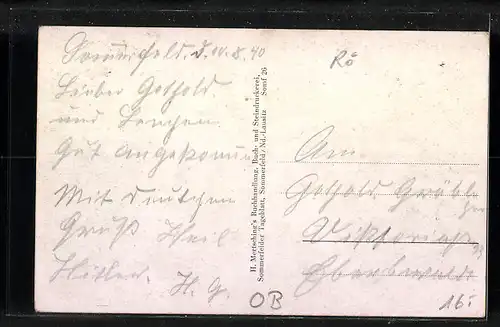 Sommerfeld. d. 10.8.40
Lieber Gothold
und Lenchen
Gut angekomm
Mit Deutschen
Gruß Heil
Hitler. H. G.
H. Mertsching's Buchhandlung, Buch- und Steindruckerei,
Sommerfelder Tageblatt, Sommerfeld/Nd.-Lausitz Somf 26
Rö
An
Gothold
Eberswalde
OB
16.-